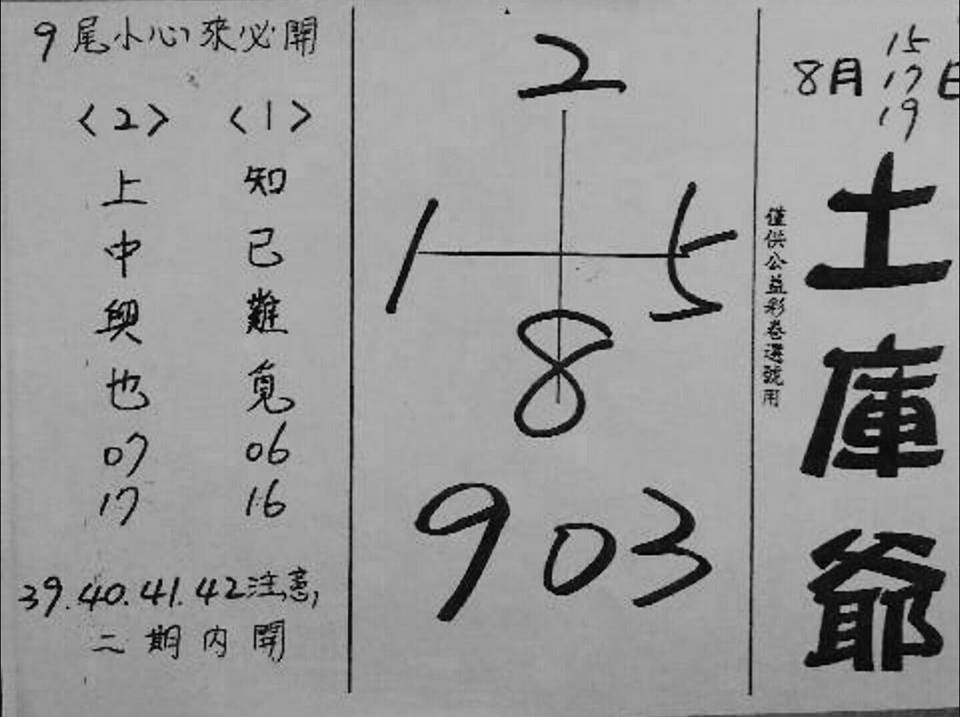 8月 15 17 19 日
土庫爺
僅供公益彩卷選號用
2
1 5
8
903
9尾小心來必開
<1>
知己難覓
06
16
<2>
上中興也
07
17
39.40.41.42注意,
二期內開